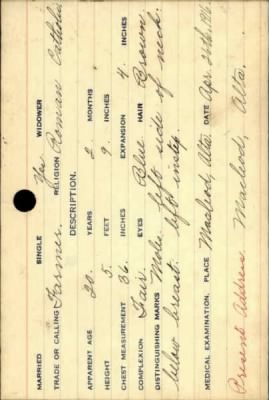 MARRIED SINGLE Yes WIDOWER
TRADE OR CALLING Farmer. RELIGION Roman Catholic
DESCRIPTION.
APPARENT AGE 20 YEARS 2 MONTHS
HEIGHT 5 FEET 9 INCHES
CHEST MEASUREMENT 36 INCHES EXPANSION 4 INCHES
COMPLEXION Fair EYES Blue HAIR Brown
DISTINGUISHING MARKS Mole left side of neck.
below breast. left instep
MEDICAL EXAMINATION. PLACE Macleod, Alta. DATE Apr 24th, 1916
Present Address Macleod, Alta.